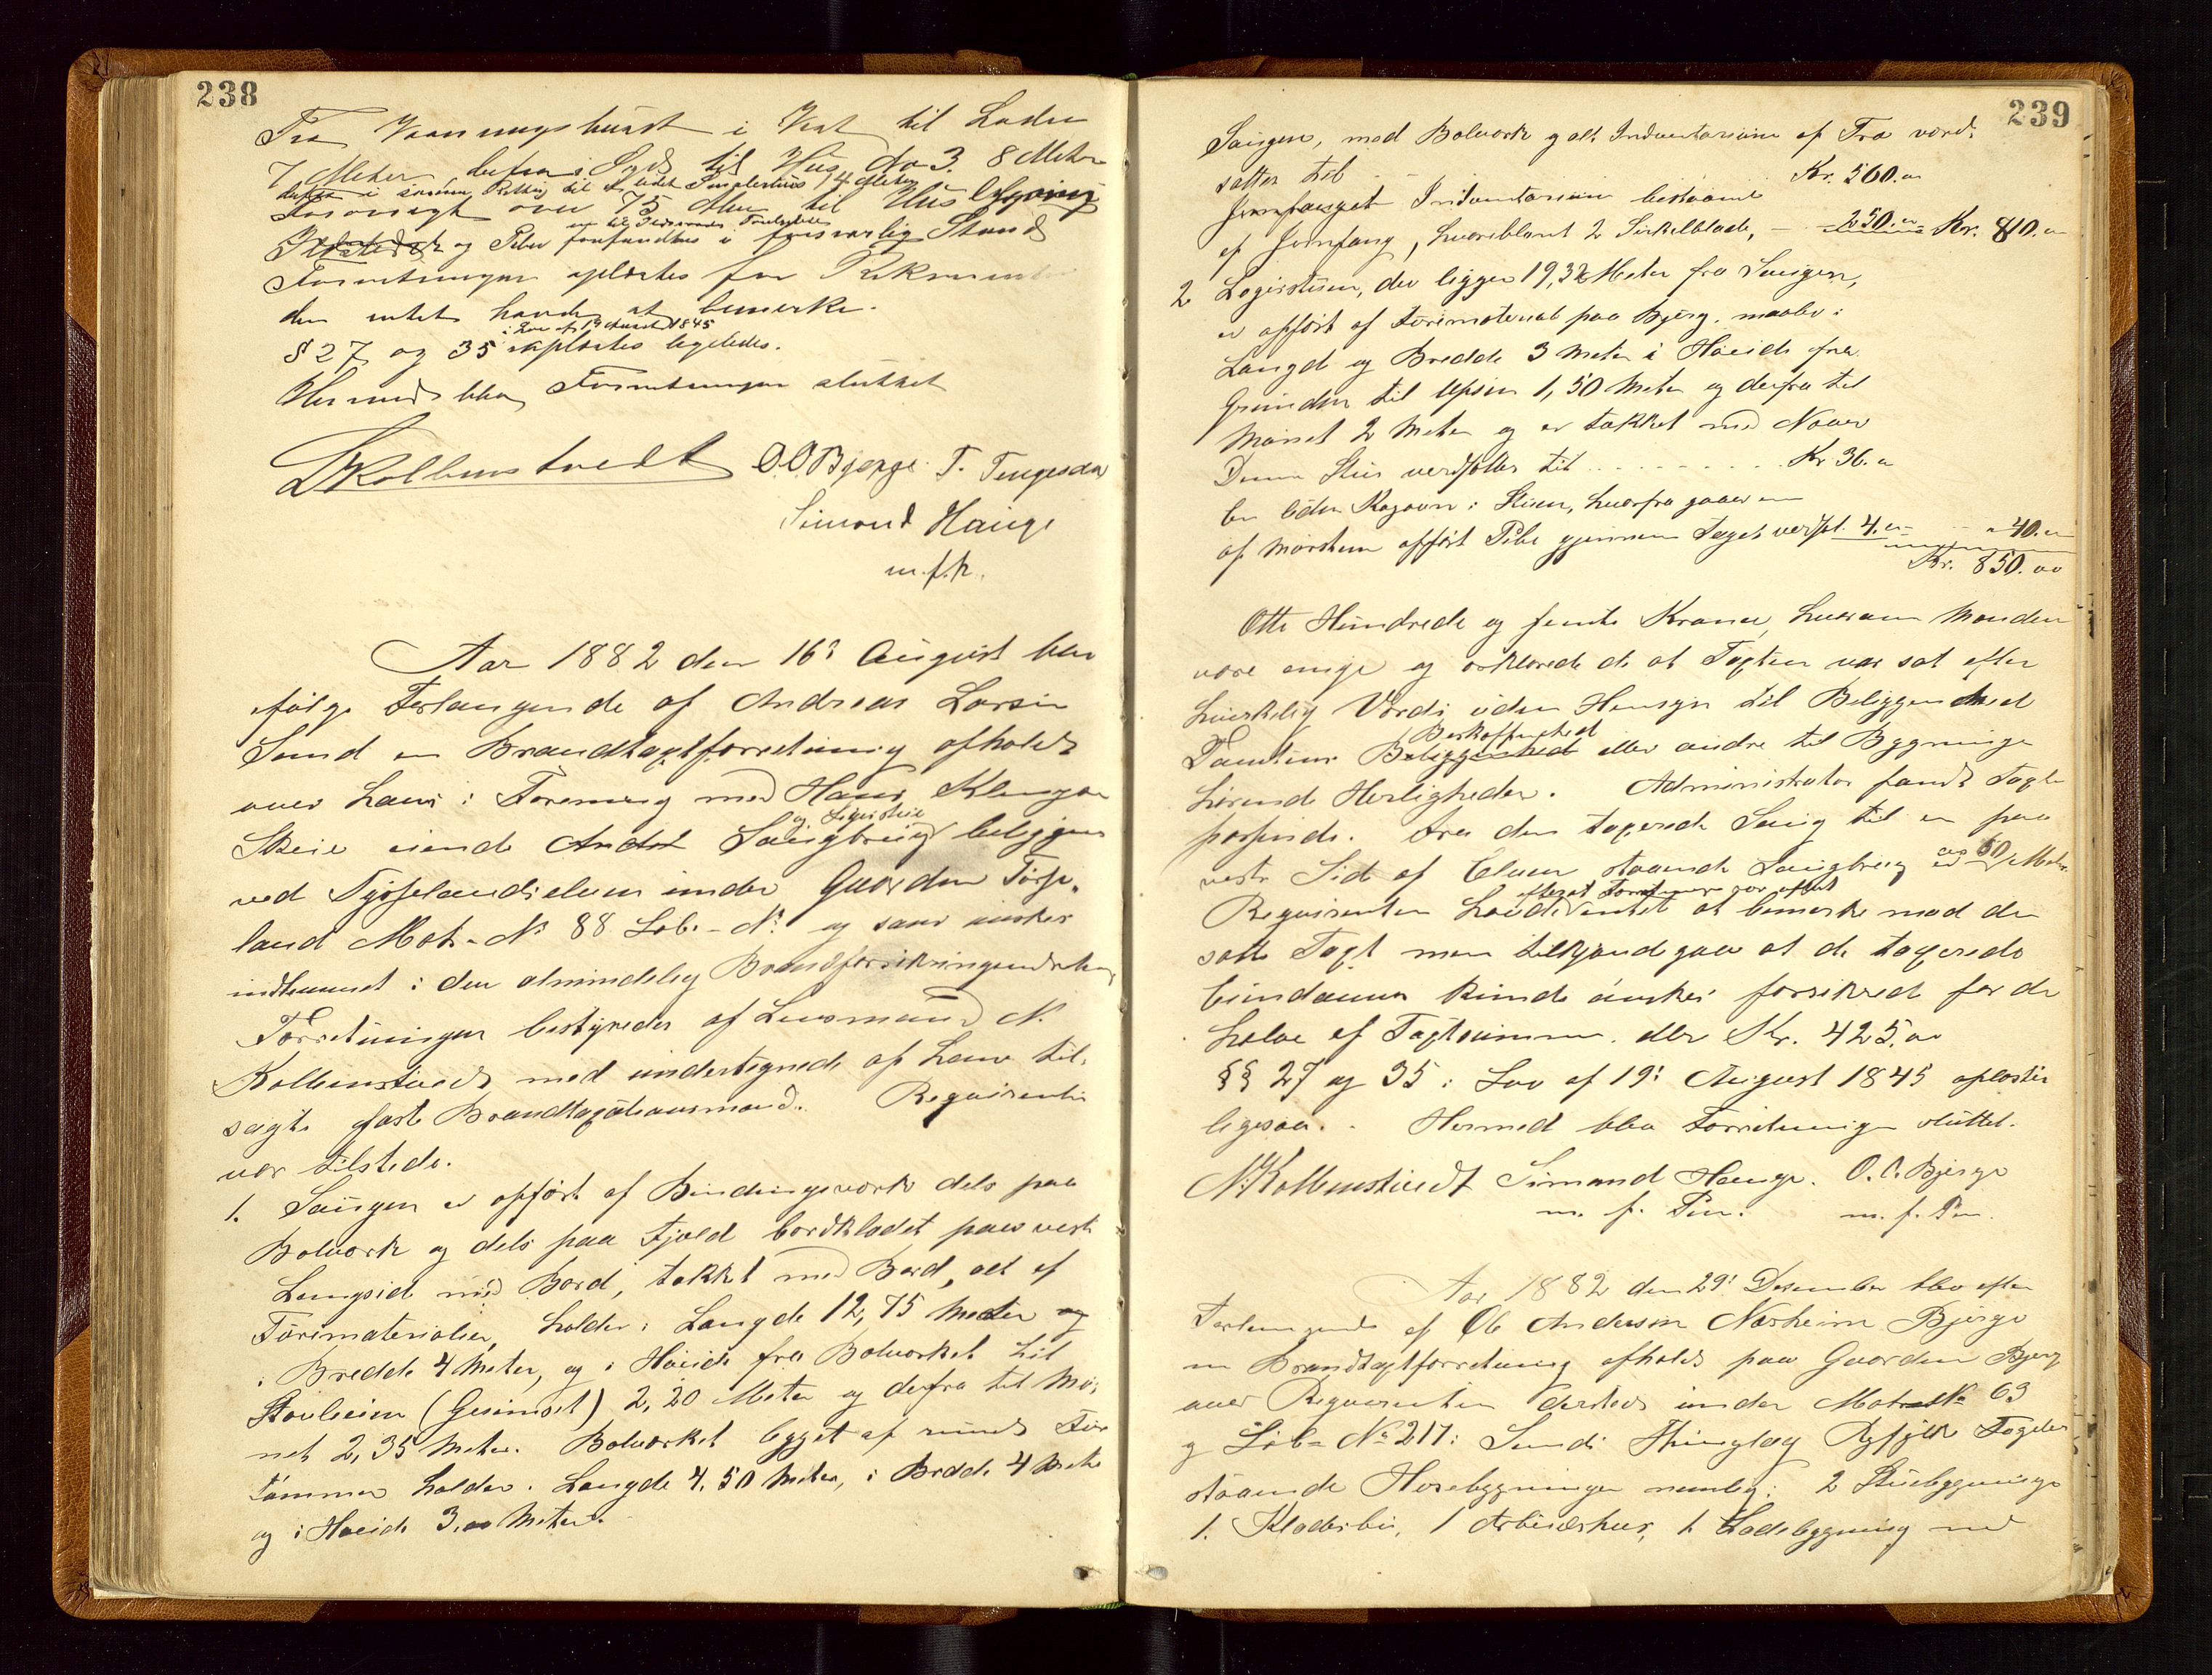 238
Fra Vaaningshuset i Vest til Laden
7 Meter, derfra i Syd til Hus No 3. 8 Meter
derfra i samme Retning til et lidet Smalehus 14 Meter
forøvrigt over 75 Alen til Hus
og Piber forfandtes i forsvarlig Stand
Forretningen oplæstes for Rekvirenten
der intet havde at bemærke.
i Lov af 19 August 1845
§ 27 og 35 oplæstes ligeledes.
Hermed blev Forretningen sluttet
N Kolbenstvedt O. O. Bjerge T. Tengesdal
Simond Hauge
m. f. P.
Aar 1882 den 16' August blev
ifølge Forlangende af Andreas Larsen
Sand en Brandtaxtforretning afholdt
over hans i Forening med Hans
og Logistue
Skeie eiende Andel Saugbrug beliggende
ved Tysselandselven under Gaarden Tysse-
land Matr. No 88 Løb.-No og som ønskes
indlemmet i den almindelig Brandforsikringsindretning
Forretningen bestyredes af Lensmand N.
Kolbenstvedt med undertegnede af ham til-
sagte faste Brandtaxationsmænd. Requirenten
var tilstede.
1. Saugen er opført af Bindingsværk dels paa
Bolværk og dels paa Fjeld bordklædet paa vestre
Langside med Bord, tækket med Bord, alt af
Furumaterialier, holder i Længde 12,75 Meter og
i Bredde 4 Meter, og i Høide fra Bolværket til
Stavleien (Gesimset) 2,20 Meter og derfra til Mø-
net 2,35 Meter. Bolværket bygget af rundt Furu
tømmer holder i Længde 4,50 Meter, i Bredde 4 Meter
og i Høide 3,00 Meter.
239
Saugen, med Bolværk og alt Indventarium af Træ værd-
sættes til Kr. 560.00
Jernfanget Indventarium bestaaende
af Jernfang, hvoriblant 2 Sirkelblade, - 250.00 Kr. 810.00
2 Logistuen, der ligger 19,32 Meter fra Saugen,
er opført af Furimateriale paa Bjerg. maaler i
Længd og Bredde 3 Meter i Høide fra
Grunden til Upsen 1,50 Meter og derfra til
Mønet 2 Meter og er tækket med Næver
Denne Stue værdsættes til Kr 36.00
En liden Kogovn i Stuen, hvorfra gaaer en
af Mursten opført Pibe gjennem Taget verds. 4.00 - " 40.00
Kr. 850.00
Otte Hundrede og femti Kroner, hvorom Mændene
vare enige og erklærede de at Taxten var sat efter
hvirkelig Værdi uden Hensyn til Beliggenhed
Beskaffenhed
Tomtens Beliggenhed eller andre til Bygninge
hørende Herligheder. Administrator fandt Taxten
passende. Fra den taxerede Saug til en paa
vestr Side af Elven staaende Saugbrug er 60 Meter.
efterat Forretningen var oplæst
Requirenten havde intet at bemerke mod den
satte Taxt men tilkjendegav at de taxerede
Eiendomme kunde ønskes forsikred for de
halve af Taxtsummen, eller Kr. 425.00
§§ 27 og 35 i Lov af 19' August 1845 oplæstes
ligesaa. Hermed blev Forretningen sluttet.
N. Kolbenstvedt Simond Hauge. O. O. Bjerge
m. f. Pen. m. f. Pen.
Aar 1882 den 29' Desember blev efter
Forlangende af Ole Andersen Nærheim Bjerge
en Brandtaxtforretning afholdt paa Gaarden Bjerg
over Requirenten dersteds under Matr. No 63
og Løb- No 217 i Sands Thinglag Ryfylke Fogderi
staaende Husebygninger nemlig: 2 Stuebygninge
1 Klædesbu, 1 Arbeidshus, 1 Ladebygning med